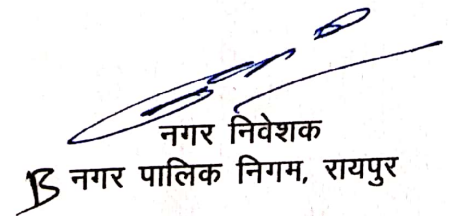 नगर निवेशक
B नगर पालिक निगम, रायपुर